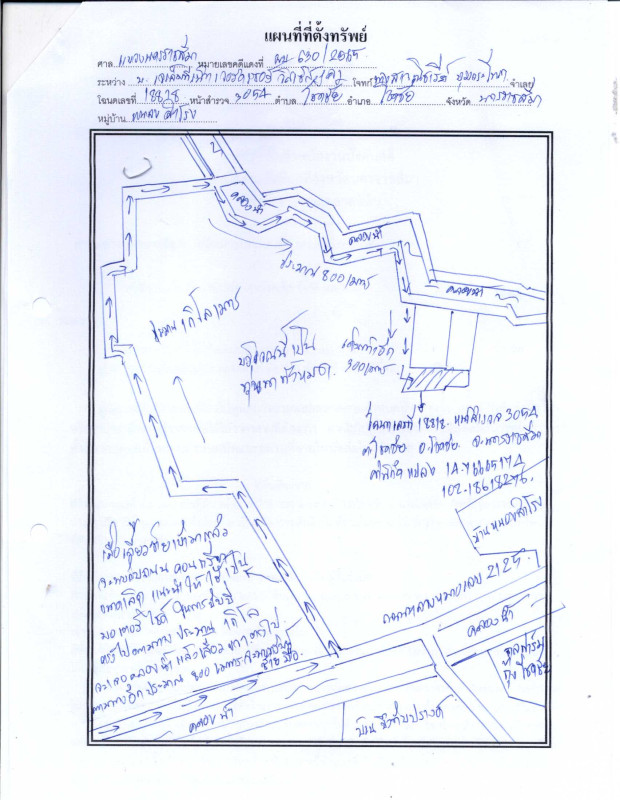 แผนที่ที่ตั้งทรัพย์
ศาล แขวงนครราชสีมา หมายเลขคดีแดงที่ ผบ 630/2565
ระหว่าง บ. โจทก์ จำเลย
โฉนดเลขที่ 18818 หน้าสำรวจ 3054 ตำบล โชคชัย อำเภอ โชคชัย จังหวัด นครราชสีมา
หมู่บ้าน หนองสำโรง
คลองน้ำ
คลองน้ำ
คลองน้ำ
ประมาณ 800 เมตร
ประมาณ 1 กิโลเมตร
บริเวณนี้เป็น
ทุ่งนาทั้งหมด
300 เมตร
โฉนดเลขที่ 18818 หน้าสำรวจ 3054
ต.โชคชัย อ.โชคชัย จ.นครราชสีมา
ค่าพิกัดแปลง 14.76665174
102.18618276
บ้านหนองสำโรง
ถนนทางหลวงหมายเลข 2125
เมื่อเลี้ยวซ้ายเข้ามาแล้ว
จะพบถนน
แนะนำให้ใช้เป็น
มอเตอร์ไซค์ในการขับขี่
ตรงไปตามทาง ประมาณ 1 กิโล
จะเจอคลองน้ำ แล้วเลี้ยวขวา ตรงไป
ตามทางอีก ประมาณ 800 เมตร
ซ้ายมือ
คลองน้ำ
คลองน้ำ
บ้านบึงทับปรางค์